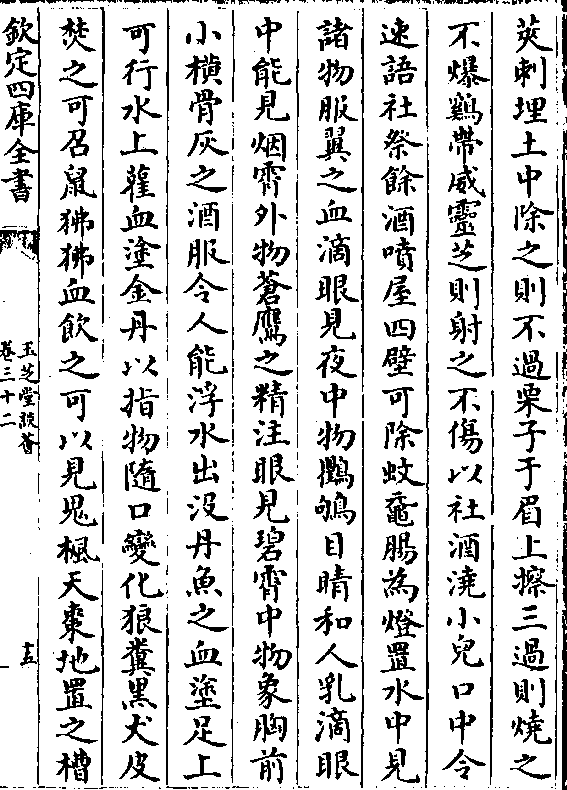 莢刺埋土中除之則不過栗子于眉上擦三過則燒之
不爆鷄帶威靈芝則射之不傷以社酒澆小兒口中令
速語社祭餘酒噴屋四壁可除蚊黿腸為燈置水中見
諸物服翼之血滴眼見夜中物鸜鵒目睛和人乳滴眼
中能見烟霄外物蒼鷹之精注眼見碧霄中物象胸前
小橫骨灰之酒服令人能浮水出没丹魚之血塗足上
可行水上雚血塗金丹以指物隨口變化狼糞黑犬皮
焚之可召鼠狒狒血飲之可以見鬼楓天棗地置之槽
欽定四庫全書
玉芝堂談薈
卷三十二
十五